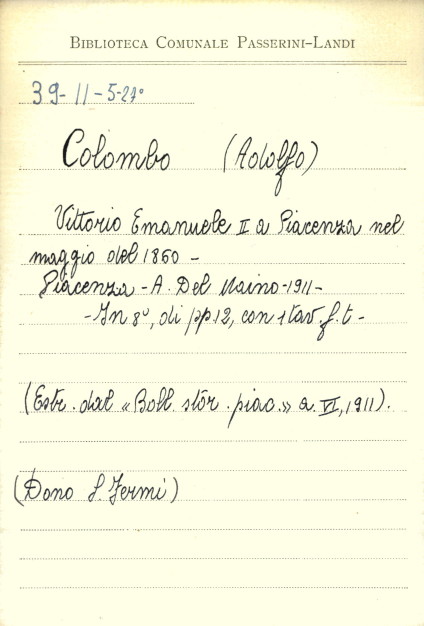 BIBLIOTECA COMUNALE PASSERINI-LANDI
39-11-5-27°
Colombo (Adolfo)
Vittorio Emanuele II a Piacenza nel
maggio del 1860 -
Piacenza - A. Del Maino - 1911 -
- In 8°, di pp. 12, con 1 tav. f. t -
(Estr. dal «Boll. stor. piac.» a. VI, 1911).
(Dono S. Fermi)